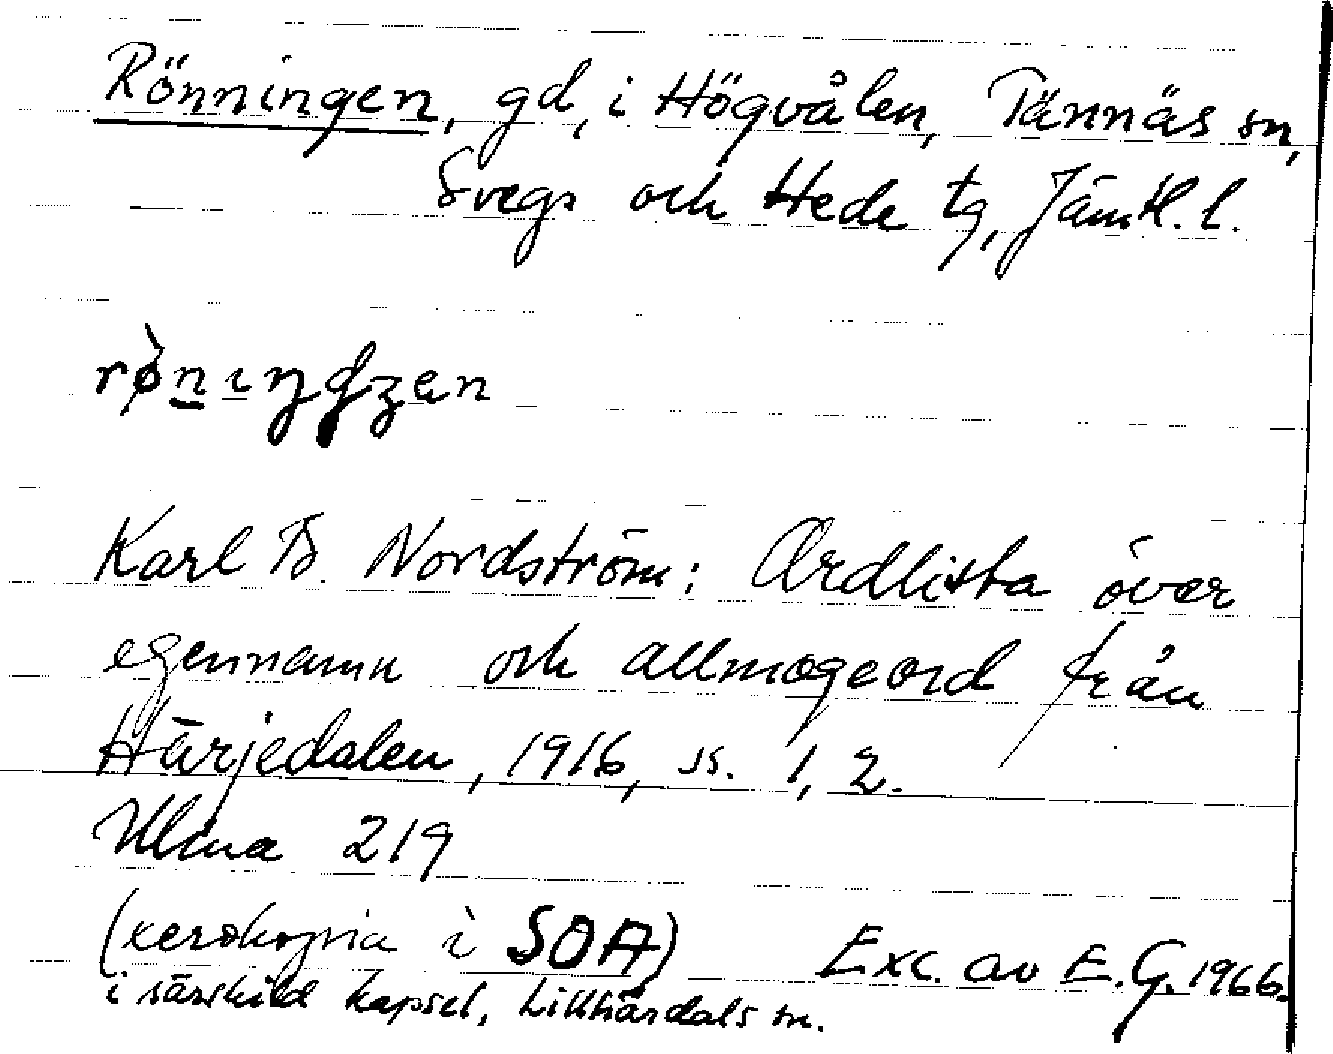 Rönningen, gd, i Högvålen, Tännäs sn,
Svegs och Hede tg, Jämtl. l.
Karl B. Nordström: Ordlista över
egennamn och allmogeord från
Härjedalen, 1916, ss. 1, 2.
Ulma 219
(xerokopia i SOA) Exc. av E.G. 1966.
i särskild kapsel, Lillhärdals sn.